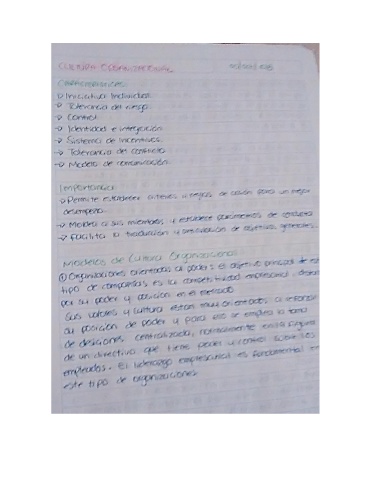 CULTURA ORGANIZACIONAL
Características
→ Iniciativa Individual.
→ Tolerancia del riesgo.
→ Control
→ Identidad e integración
→ Sistema de Incentivos.
→ Tolerancia del conflicto
→ Modelo de comunicación.
Importancia
→ Permite establecer criterios y reglas de acción para un mejor
desempeño.
→ Moldea a sus miembros y establece parámetros de conducta
→ Facilita la traducción y de objetivos generales.
Modelos de Cultura Organizacional
① Organizaciones orientadas al poder: el objetivo principal de este
tipo de compañías es la competitividad empresarial,
por su poder y posición en el mercado
Sus valores y cultura están muy orientados a reforzar
su posición de poder y para eso se emplea la toma
de desiciones centralizada, normalmente
de un directivo que tiene poder y control sobre los
empleados. El liderazgo empresarial es fundamental en
este tipo de organizaciones